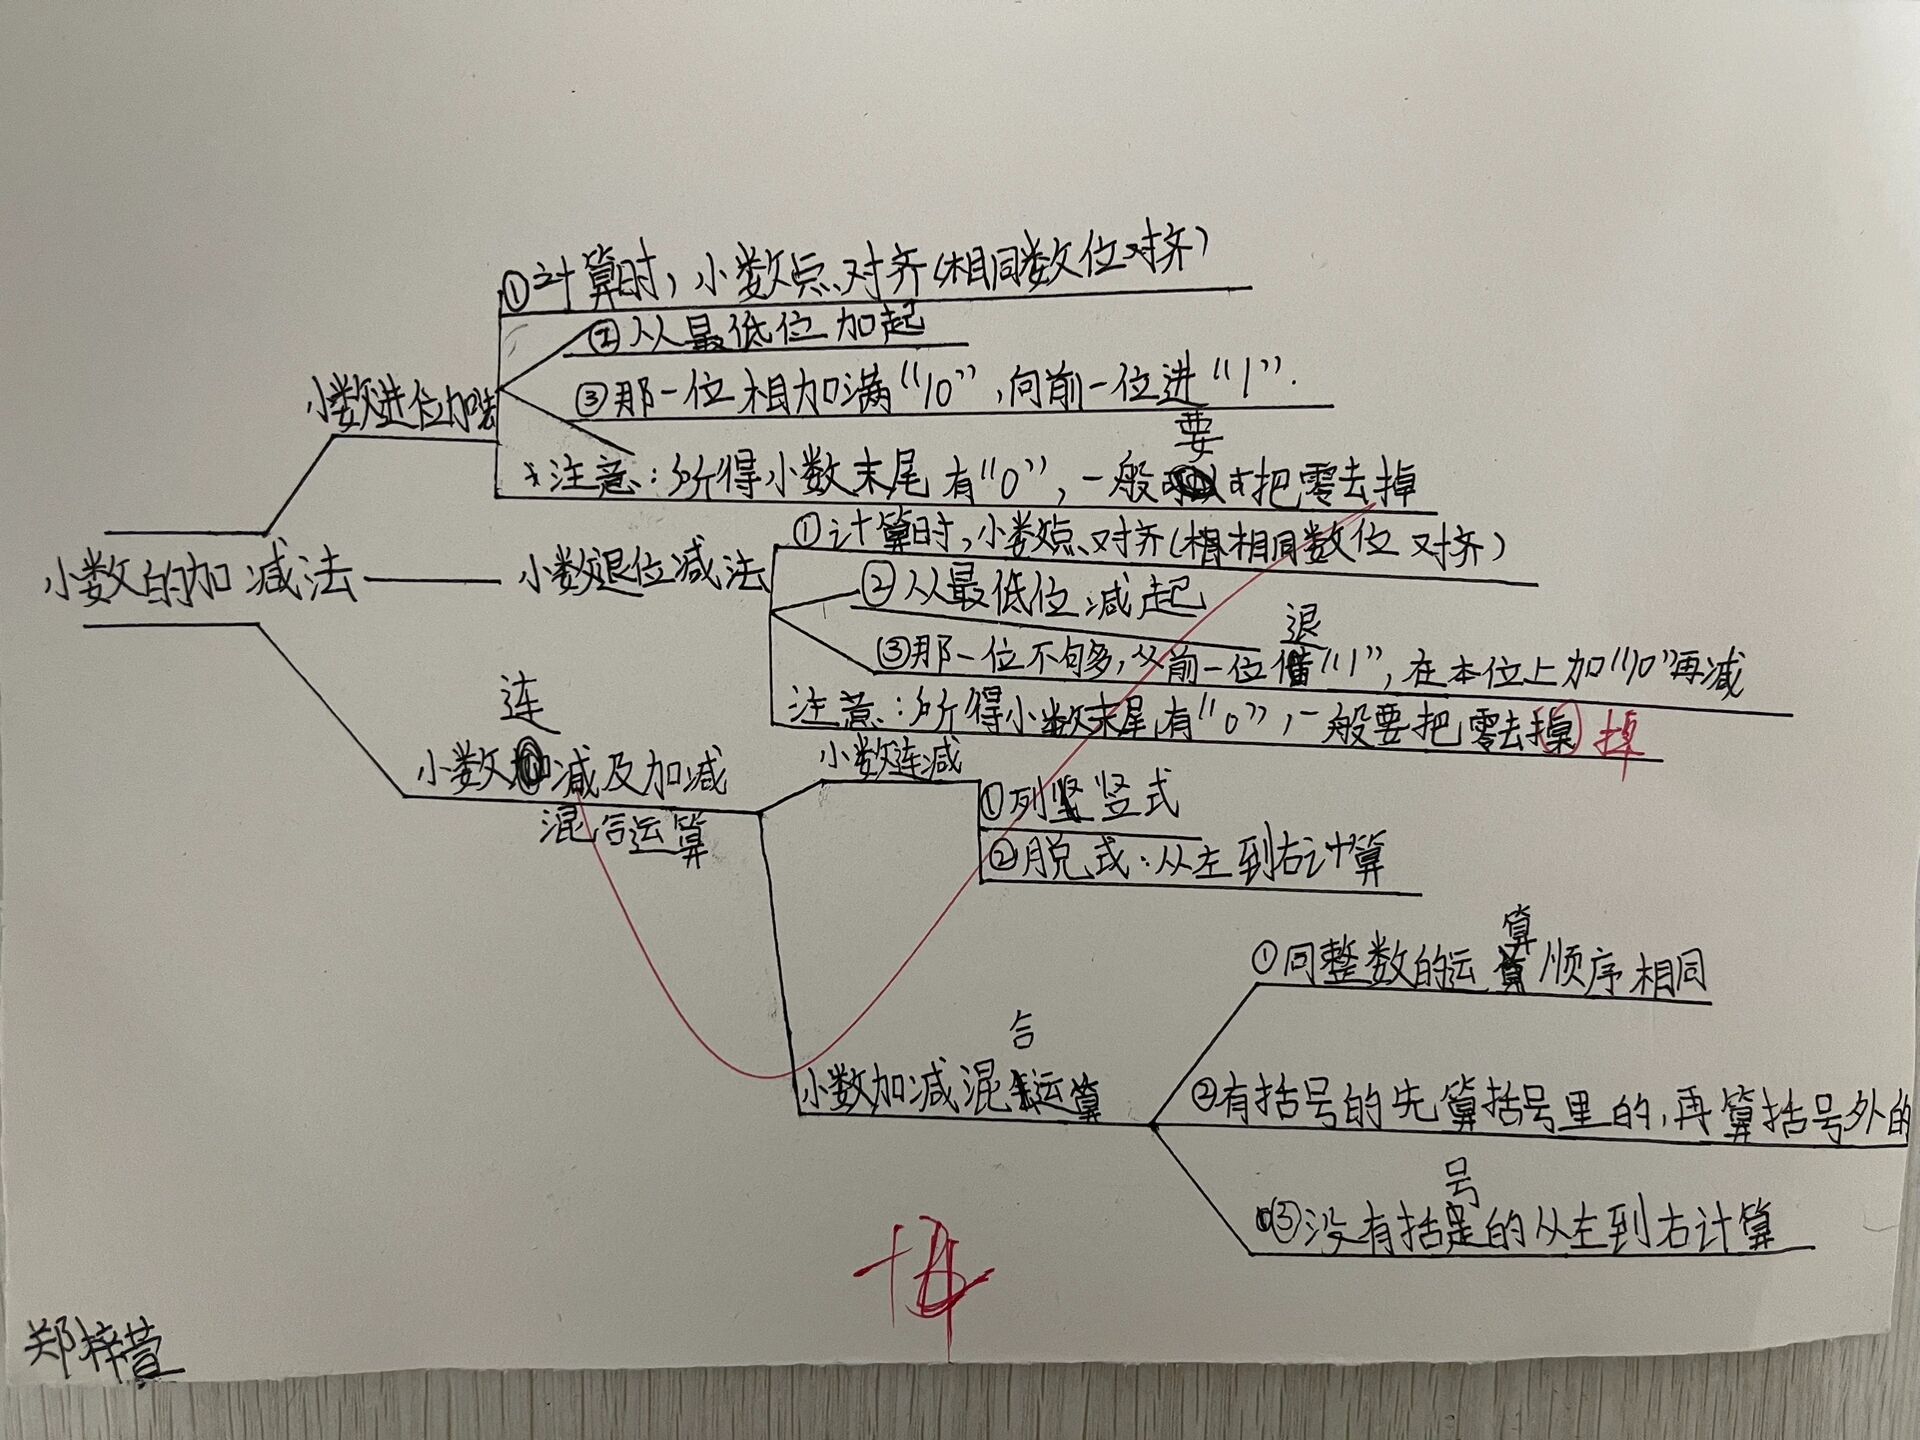 ①计算时，小数点对齐(相同数位对齐)
②从最低位加起
③那一位相加满“10”，向前一位进“1”.
小数进位加法
要
*注意：所得小数末尾有“0”，一般把零去掉
①计算时，小数点对齐(相同数位对齐)
小数的加减法
小数退位减法
②从最低位减起
退
③那一位不够，从前一位“1”，在本位上加“10”再减
注意：所得小数末尾有“0”，一般要把零去掉
掉
连
小数减及加减
混合运算
小数连减
①列竖式
②脱式：从左到右计算
算
①同整数的运顺序相同
合
小数加减混运算
②有括号的先算括号里的，再算括号外的
号
③没有括的从左到右计算
郑梓萱